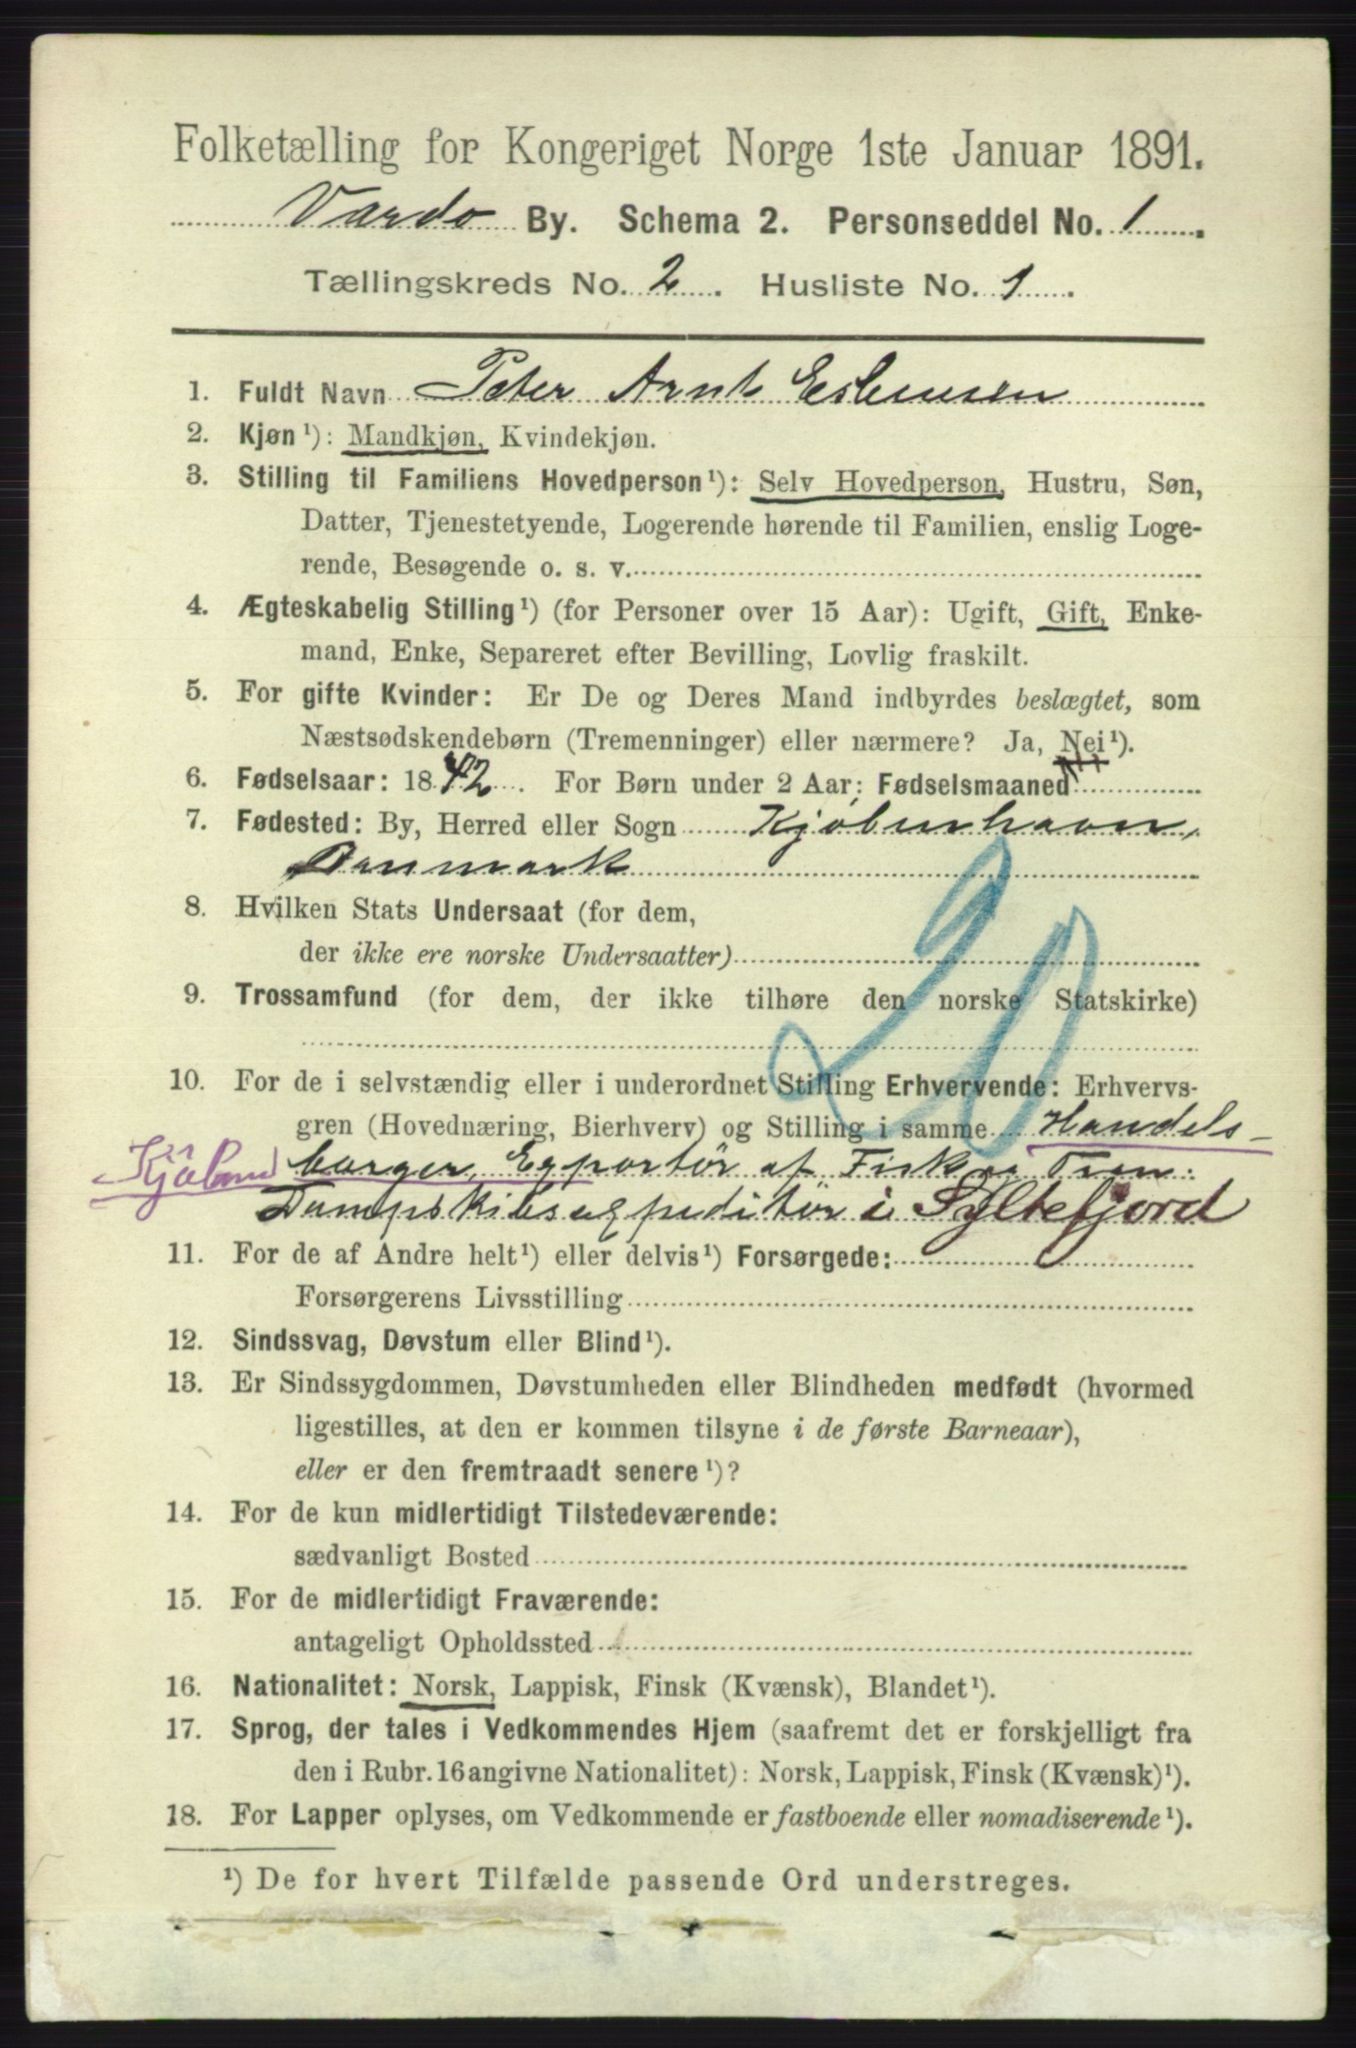 Folketælling for Kongeriget Norge 1ste Januar 1891.
Vardo By. Schema 2. Personseddel No. 1.
Tællingskreds No. 2. Husliste No. 1.
1. Fuldt Navn Peter Arnt Esbensen
2. Kjøn ¹): Mandkjøn, Kvindekjøn.
3. Stilling til Familiens Hovedperson ¹): Selv Hovedperson, Hustru, Søn,
Datter, Tjenestetyende, Logerende hørende til Familien, enslig Loge-
rende, Besøgende o. s. v.
4. Ægteskabelig Stilling ¹) (for Personer over 15 Aar): Ugift, Gift, Enke-
mand, Enke, Separeret efter Bevilling, Lovlig fraskilt.
5. For gifte Kvinder: Er De og Deres Mand indbyrdes beslægtet, som
Næstsødskendebørn (Tremenninger) eller nærmere? Ja, Nei ¹).
6. Fødselsaar: 1842. For Børn under 2 Aar: Fødselsmaaned
7. Fødested: By, Herred eller Sogn Kjöbenhavn,
Danmark
8. Hvilken Stats Undersaat (for dem,
der ikke ere norske Undersaatter)
20
9. Trossamfund (for dem, der ikke tilhøre den norske Statskirke)
10. For de i selvstændig eller i underordnet Stilling Erhvervende: Erhvervs-
gren (Hovednæring, Bierhverv) og Stilling i samme Handels-
Kjöbm borger, Exportör af Fisk og Tran.
Dampskibsexpeditör i Syltefjord
11. For de af Andre helt ¹) eller delvis ¹) Forsørgede:
Forsørgerens Livsstilling
12. Sindssvag, Døvstum eller Blind ¹).
13. Er Sindssygdommen, Døvstumheden eller Blindheden medfødt (hvormed
ligestilles, at den er kommen tilsyne i de første Barneaar),
eller er den fremtraadt senere ¹)?
14. For de kun midlertidigt Tilstedeværende:
sædvanligt Bosted
15. For de midlertidigt Fraværende:
antageligt Opholdssted
16. Nationalitet: Norsk, Lappisk, Finsk (Kvænsk), Blandet ¹).
17. Sprog, der tales i Vedkommendes Hjem (saafremt det er forskjelligt fra
den i Rubr. 16 angivne Nationalitet): Norsk, Lappisk, Finsk (Kvænsk) ¹).
18. For Lapper oplyses, om Vedkommende er fastboende eller nomadiserende ¹).
¹) De for hvert Tilfælde passende Ord understreges.